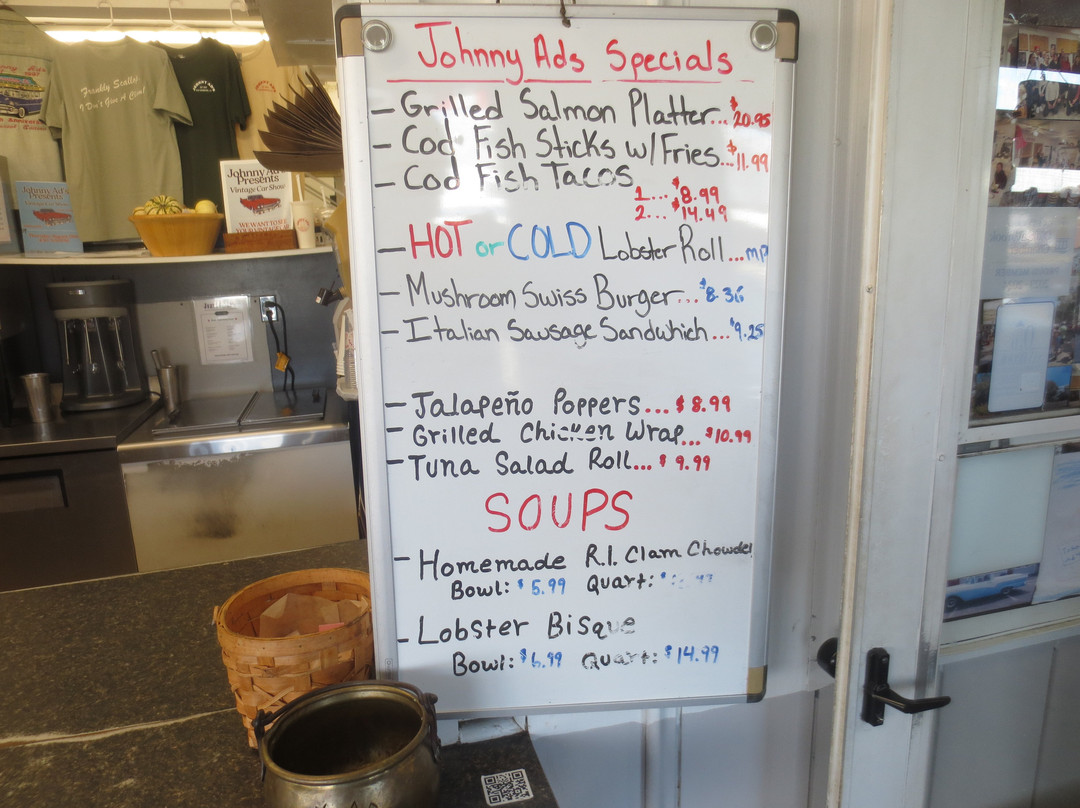 Johnny Ads Specials
- Grilled Salmon Platter... $20.95
- Cod Fish Sticks w/Fries... $11.99
- Cod Fish Tacos
1... $8.99
2... $14.49
- HOT or COLD Lobster Roll... mp
- Mushroom Swiss Burger... $8.36
- Italian Sausage Sandwhich... $9.25
- Jalapeño Poppers... $8.99
- Grilled Chicken Wrap... $10.99
- Tuna Salad Roll... $9.99
SOUPS
- Homemade R.I. Clam Chowder
Bowl: $5.99 Quart:
- Lobster Bisque
Bowl: $6.99 Quart: $14.99
Frankly Scallop
I Don't Give A Clam!
Johnny Ad's
Presents
Vintage Car Show
Johnny Ad's
Presents